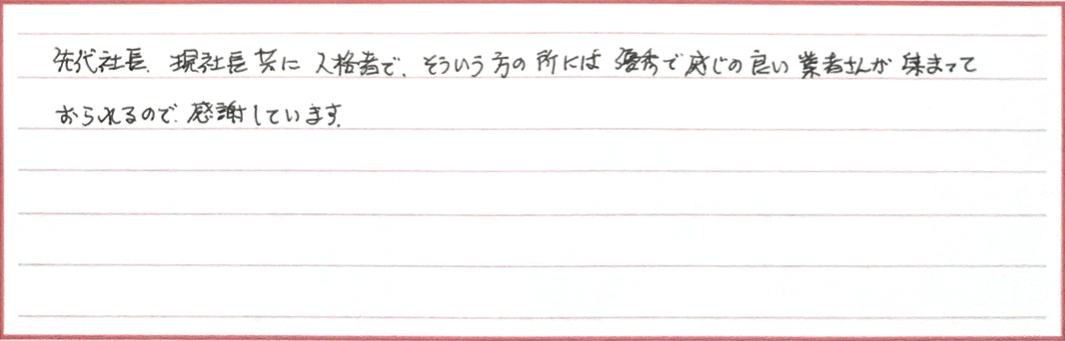 先代社長、現社長共に人格者で、そういう方の所には優秀で感じの良い業者さんが集まって
おられるので、感謝しています。